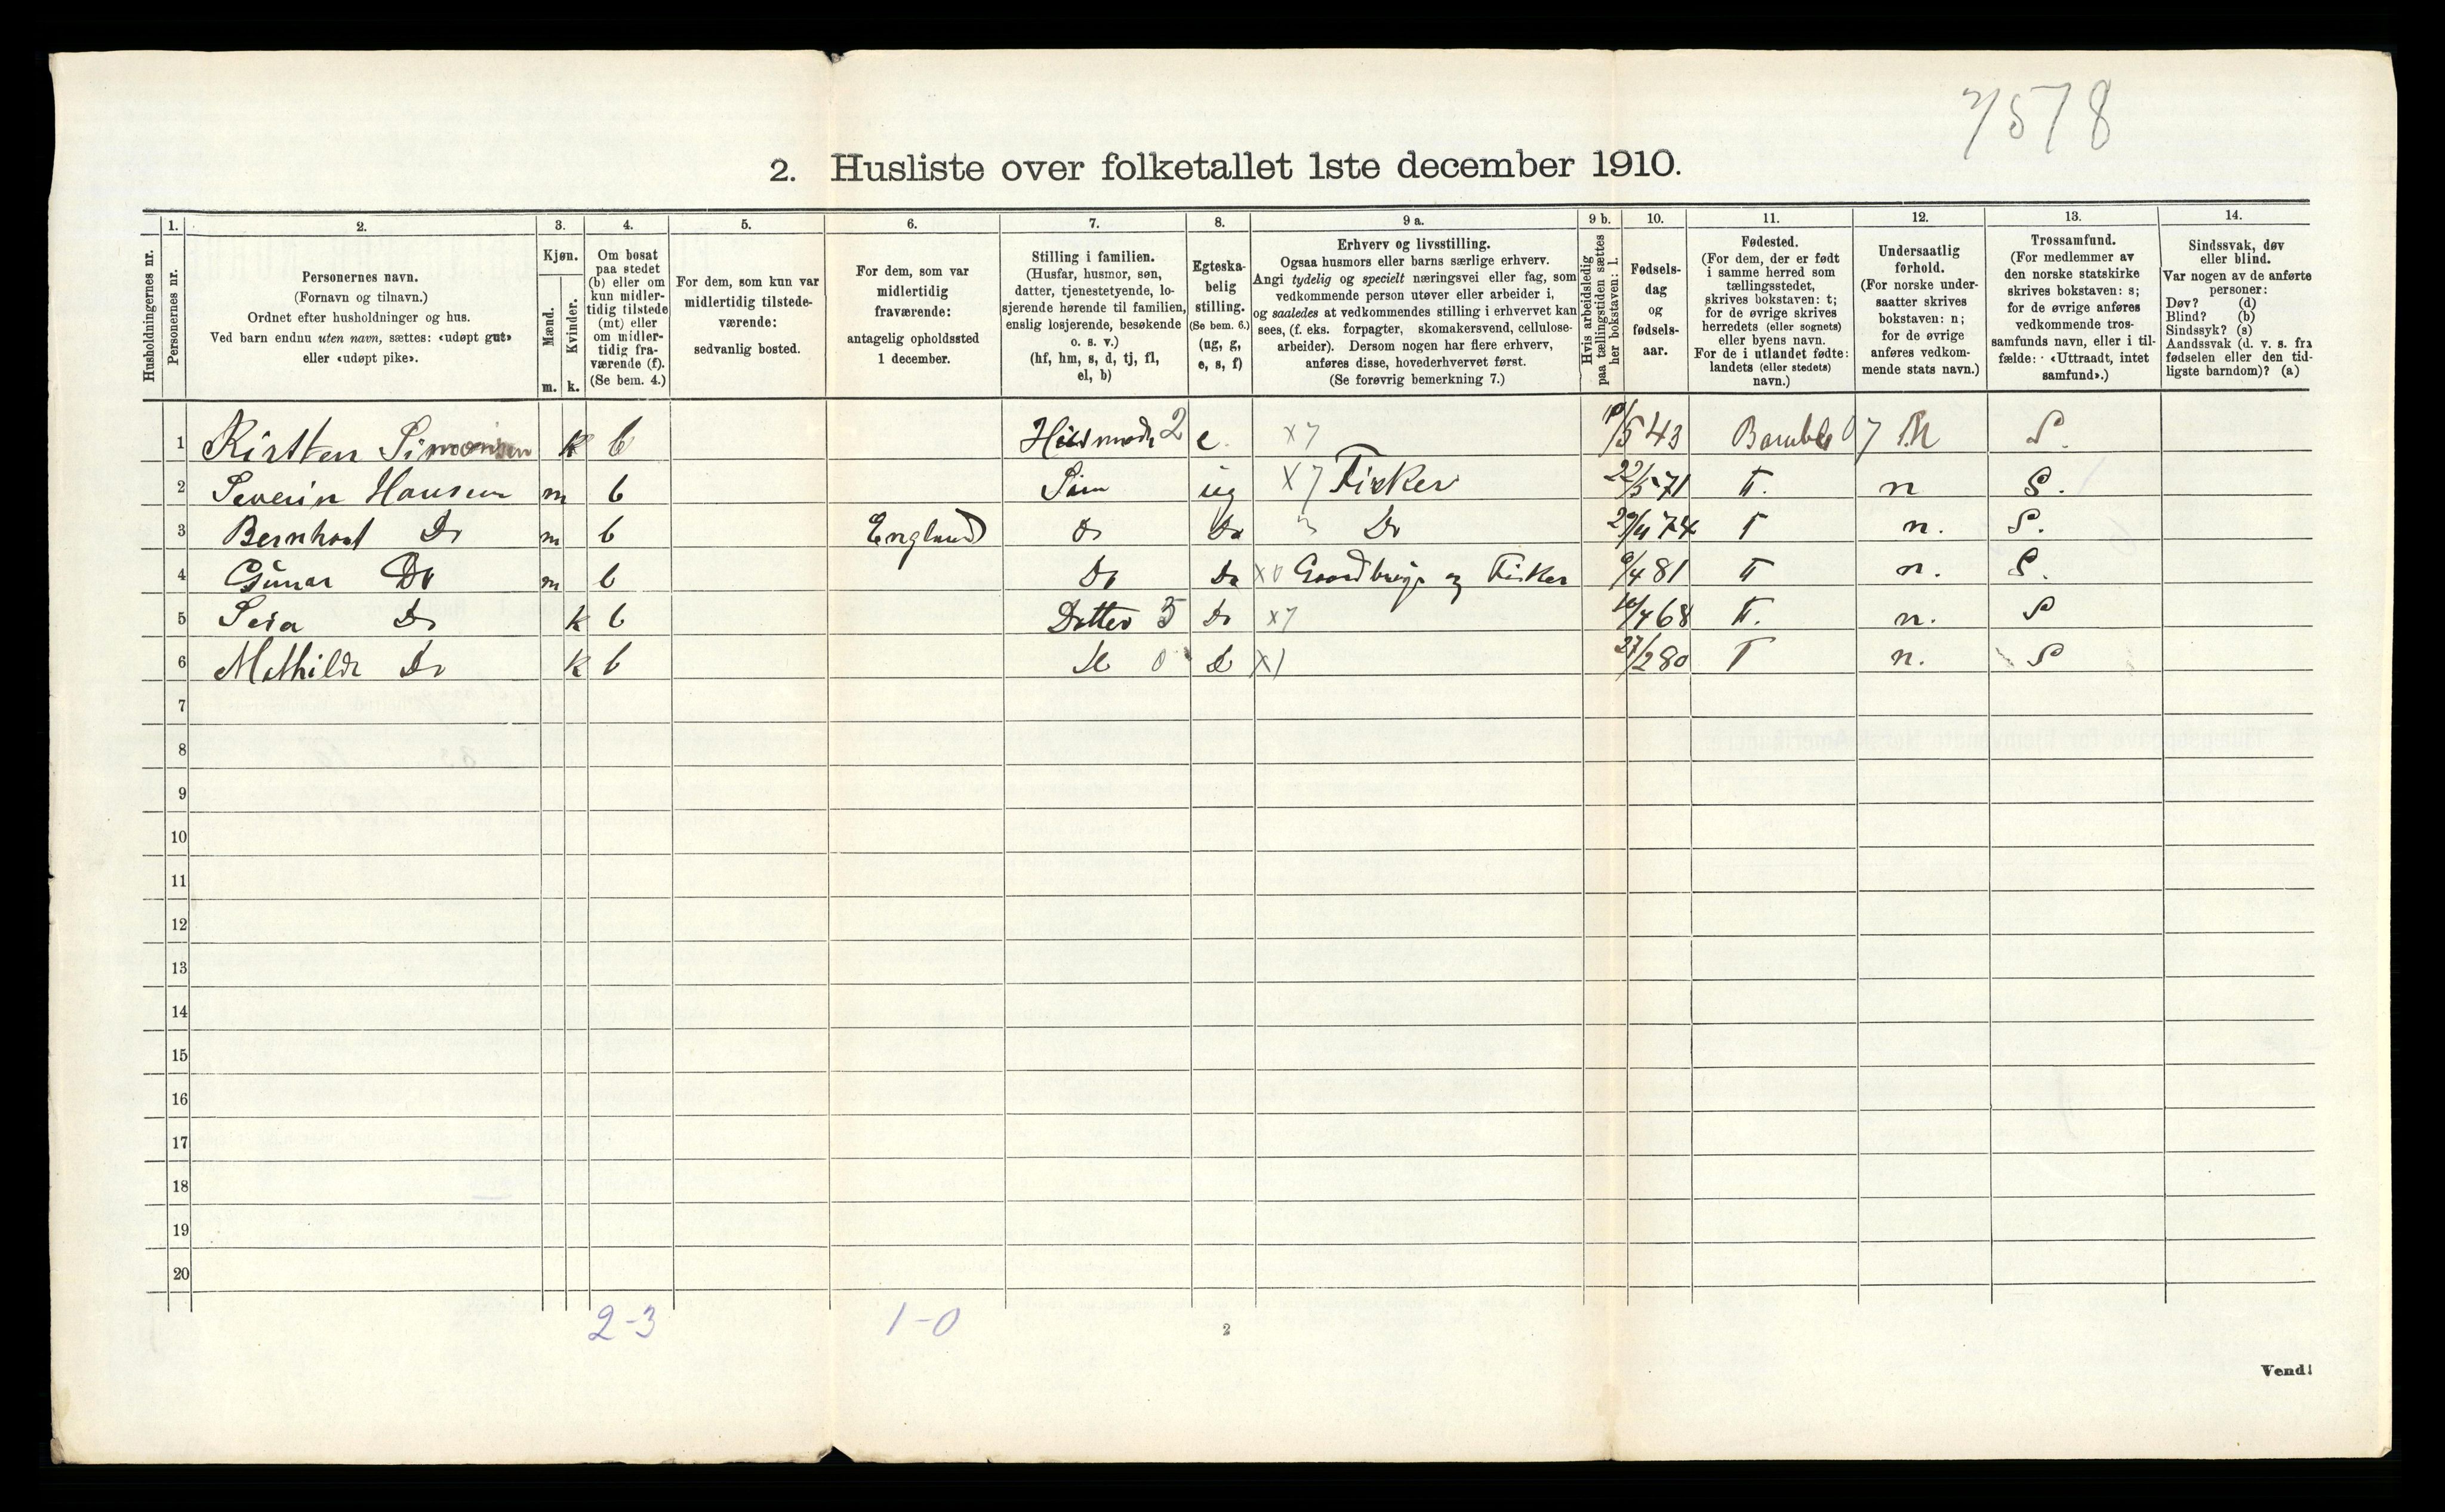 7578
2. Husliste over folketallet 1ste december 1910.
Husholdningernes nr.
1. Personernes nr.
2.
Personernes navn.
(Fornavn og tilnavn.)
Ordnet efter husholdninger og hus.
Ved barn endnu uten navn, sættes: «udøpt gut»
eller «udøpt pike».
3.
Kjøn.
Mænd. m.
Kvinder. k.
4.
Om bosat
paa stedet
(b) eller om
kun midler-
tidig tilstede
(mt) eller
om midler-
tidig fra-
værende (f).
(Se bem. 4.)
5.
For dem, som kun var
midlertidig tilstede-
værende:
sedvanlig bosted.
6.
For dem, som var
midlertidig
fraværende:
antagelig opholdssted
1 december.
7.
Stilling i familien.
(Husfar, husmor, søn,
datter, tjenestetyende, lo-
sjerende hørende til familien,
enslig losjerende, besøkende
o. s. v.)
(hf, hm, s, d, tj, fl,
el, b)
8.
Egteska-
belig
stilling.
(Se bem. 6.)
(ug, g,
e, s, f)
9 a.
Erhverv og livsstilling.
Ogsaa husmors eller barns særlige erhverv.
Angi tydelig og specielt næringsvei eller fag, som
vedkommende person utøver eller arbeider i,
og saaledes at vedkommendes stilling i erhvervet kan
sees, (f. eks. forpagter, skomakersvend, cellulose-
arbeider). Dersom nogen har flere erhverv,
anføres disse, hovederhvervet først.
(Se forøvrig bemerkning 7.)
9 b.
Hvis arbeidsledig
paa tællingstiden sættes
her bokstaven: l.
10.
Fødsels-
dag
og
fødsels-
aar.
11.
Fødested.
(For dem, der er født
i samme herred som
tællingsstedet,
skrives bokstaven: t;
for de øvrige skrives
herredets (eller sognets)
eller byens navn.
For de i utlandet fødte:
landets (eller stedets)
navn.)
12.
Undersaatlig
forhold.
(For norske under-
saatter skrives
bokstaven: n;
for de øvrige
anføres vedkom-
mende stats navn.)
13.
Trossamfund.
(For medlemmer av
den norske statskirke
skrives bokstaven: s;
for de øvrige anføres
vedkommende tros-
samfunds navn, eller i til-
fælde: «Uttraadt, intet
samfund».)
14.
Sindssvak, døv
eller blind.
Var nogen av de anførte
personer:
Døv? (d)
Blind? (b)
Sindssyk? (s)
Aandssvak (d. v. s. fra
fødselen eller den tid-
ligste barndom)? (a)
1 Kirsten Simonsen k b 2 e. x7 10/5 43 Bamble 07 n S.
2 Severin Hansen m b Søn ug x7 Fisker 22/5 71 T. n S.
3 Bernhart Do m b England Do Do Do 29/4 74 T n. S.
4 Gunar Do m b Do Do x0 Gaardbrug og Fisker 9/4 81 T n. S.
5 Do k b Datter 5 Do x7 10/4 68 T. n. S
6 Mathilde Do k b Do 0 Do x1 27/2 80 T n. S
7
8
9
10
11
12
13
14
15
16
17
18
19
20
2-3 1-0
2
Vend!